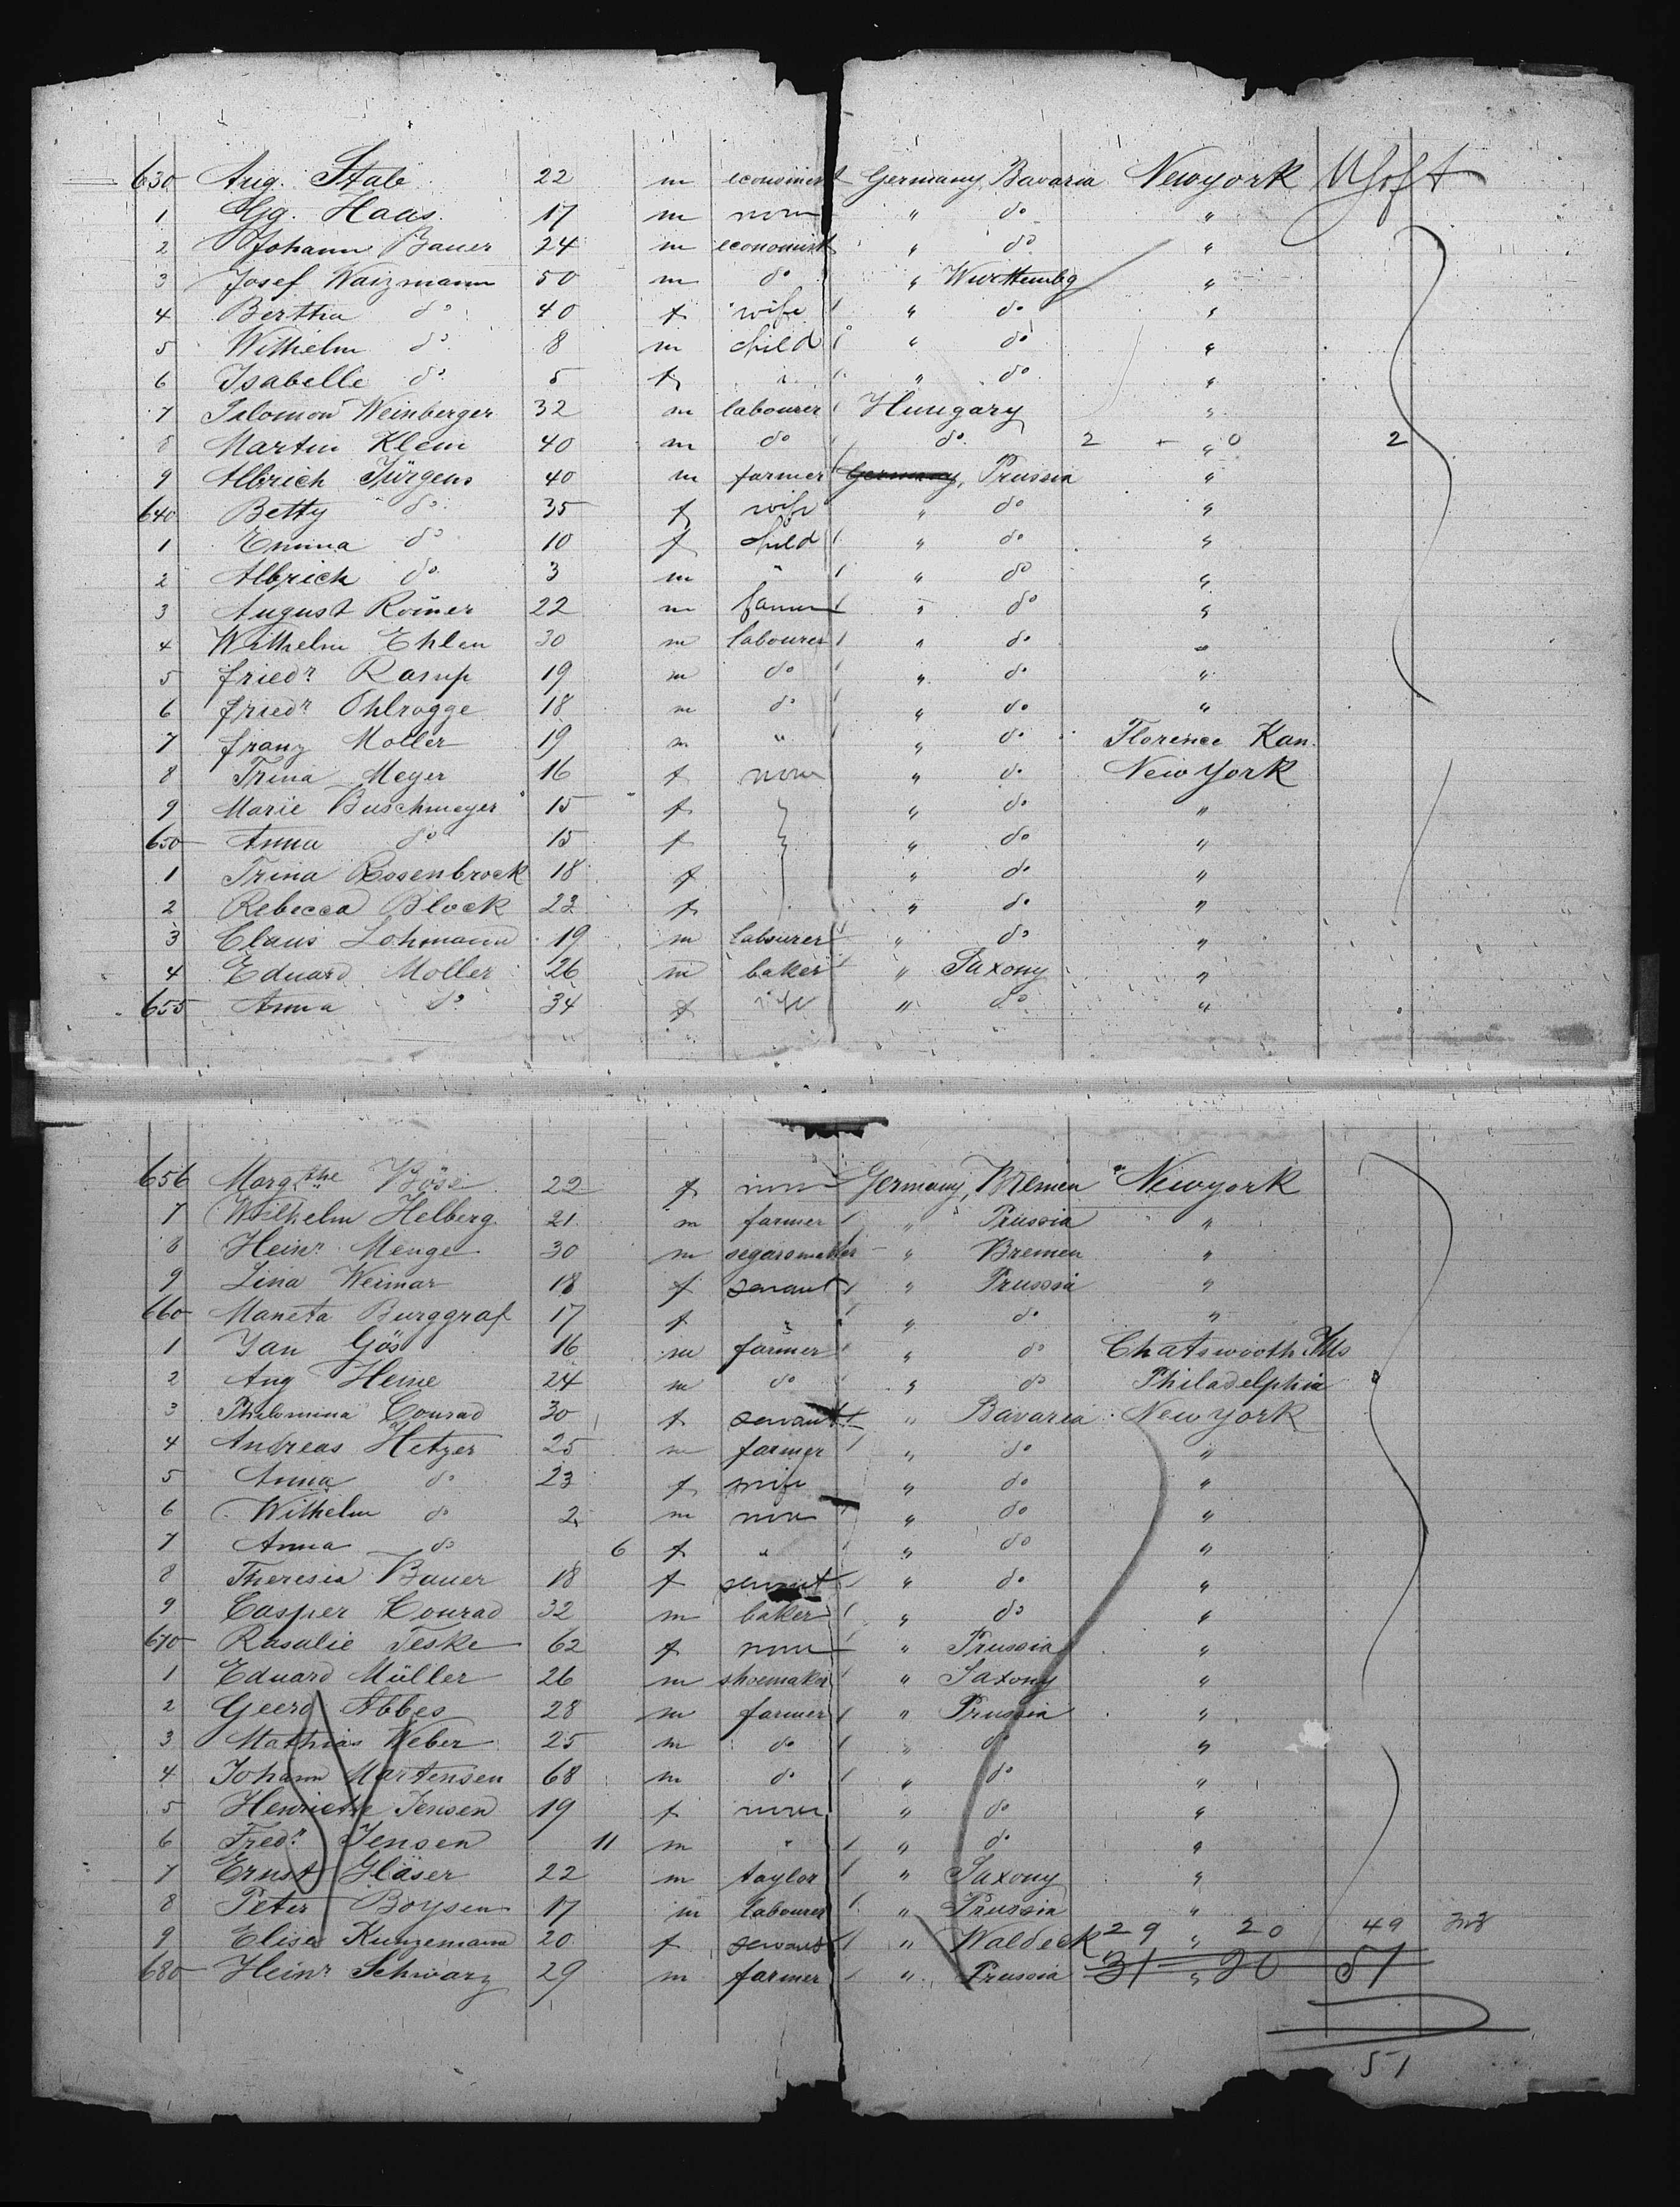 630 Aug. Stab 22 m economist Germany, Bavaria Newyork
1 Gg. Haas. 17 m none " do "
2 Johann Bauer 24 m economist " do "
3 Josef Waizmann 50 m do " Wurttembg "
4 Bertha do 40 f wife " do "
5 Wilhelm do 8 m child " do "
6 Isabelle do 5 f " " do "
7 Salomon Weinberger 32 m labourer Hungary "
8 Martin Klein 40 m do do 2 + " 0 2
9 Albrich Jürgens 40 m farmer Germany, Prussia "
640 Betty do 35 f wife " do "
1 Emma do 10 f child " do "
2 Albrich do 3 m " " do "
3 August 22 m farmer " do "
4 Wilhelm Ehlen 30 m labourer " do "
5 Friedr Ramp 19 m do " do "
6 Friedr Ohlrogge 18 m do " do "
7 Franz Moller 19 m " " do Florence Kan.
8 Trina Meyer 16 f none " do New York
9 Marie Buschmeyer 15 f " do "
650 Anna do 15 f " do "
1 Trina Rosenbrock 18 f " do "
2 Rebecca Block 22 f " do "
3 Claus Lohmann 19 m labourer " do "
4 Eduard Moller 26 m baker " Saxony "
655 Anna do 34 f wife " do "
656 Margthe Böse 22 f none Germany, Bremen Newyork
7 Wilhelm Helberg 21 m farmer " Prussia "
8 Heinr Menge 30 m segarsmaker " Bremen "
9 Lina Weimar 18 f servant " Prussia "
660 Maneta Burggraf 17 f " " do "
1 Jan Gös 16 m farmer " do Chatsworth Ills
2 Aug Heine 24 m do " do Philadelphia
3 Philomina Conrad 30 f servant " Bavaria New York
4 Andreas Hetzer 25 m farmer " do "
5 Anna do 23 f wife " do "
6 Wilhelm do 2 m none " do "
7 Anna do 6 f " " do "
8 Theresia Bauer 18 f servant " do "
9 Casper Conrad 32 m baker " do "
670 Rosalie Teske 62 f none " Prussia "
1 Eduard Müller 26 m shoemaker " Saxony "
2 Geerd Abbes 28 m farmer " Prussia "
3 Mathias Weber 25 m do " do "
4 Johann Martensen 68 m do " do "
5 Henriette Jensen 19 f none " do "
6 Fredr Jensen 11 m " " do "
7 Ernst Gläser 22 m taylor " Saxony "
8 Peter Boysen 17 m labourer " Prussia "
9 Elise Kunzemann 20 f servant " Waldeck 29 " 20 49
680 Heinr Schwarz 29 m farmer " Prussia 31 " 20 51
51